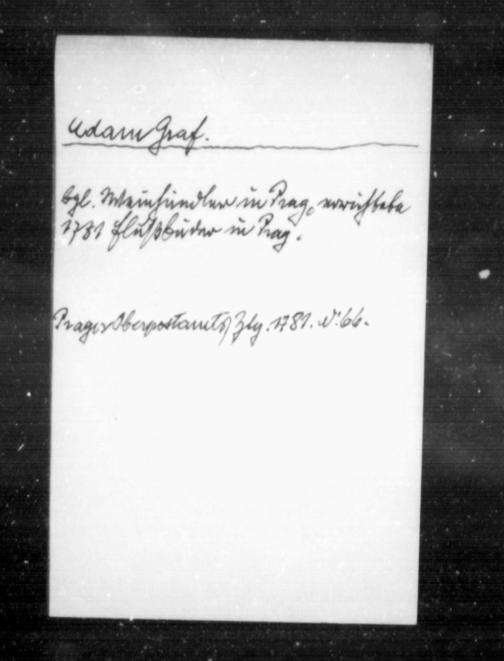 Adam Graf.
bgl. Weinhändler in Prag, errichtete
1781 Flußbäder in Prag.
Prager Oberpostamts Ztg. 1781. N: 66.